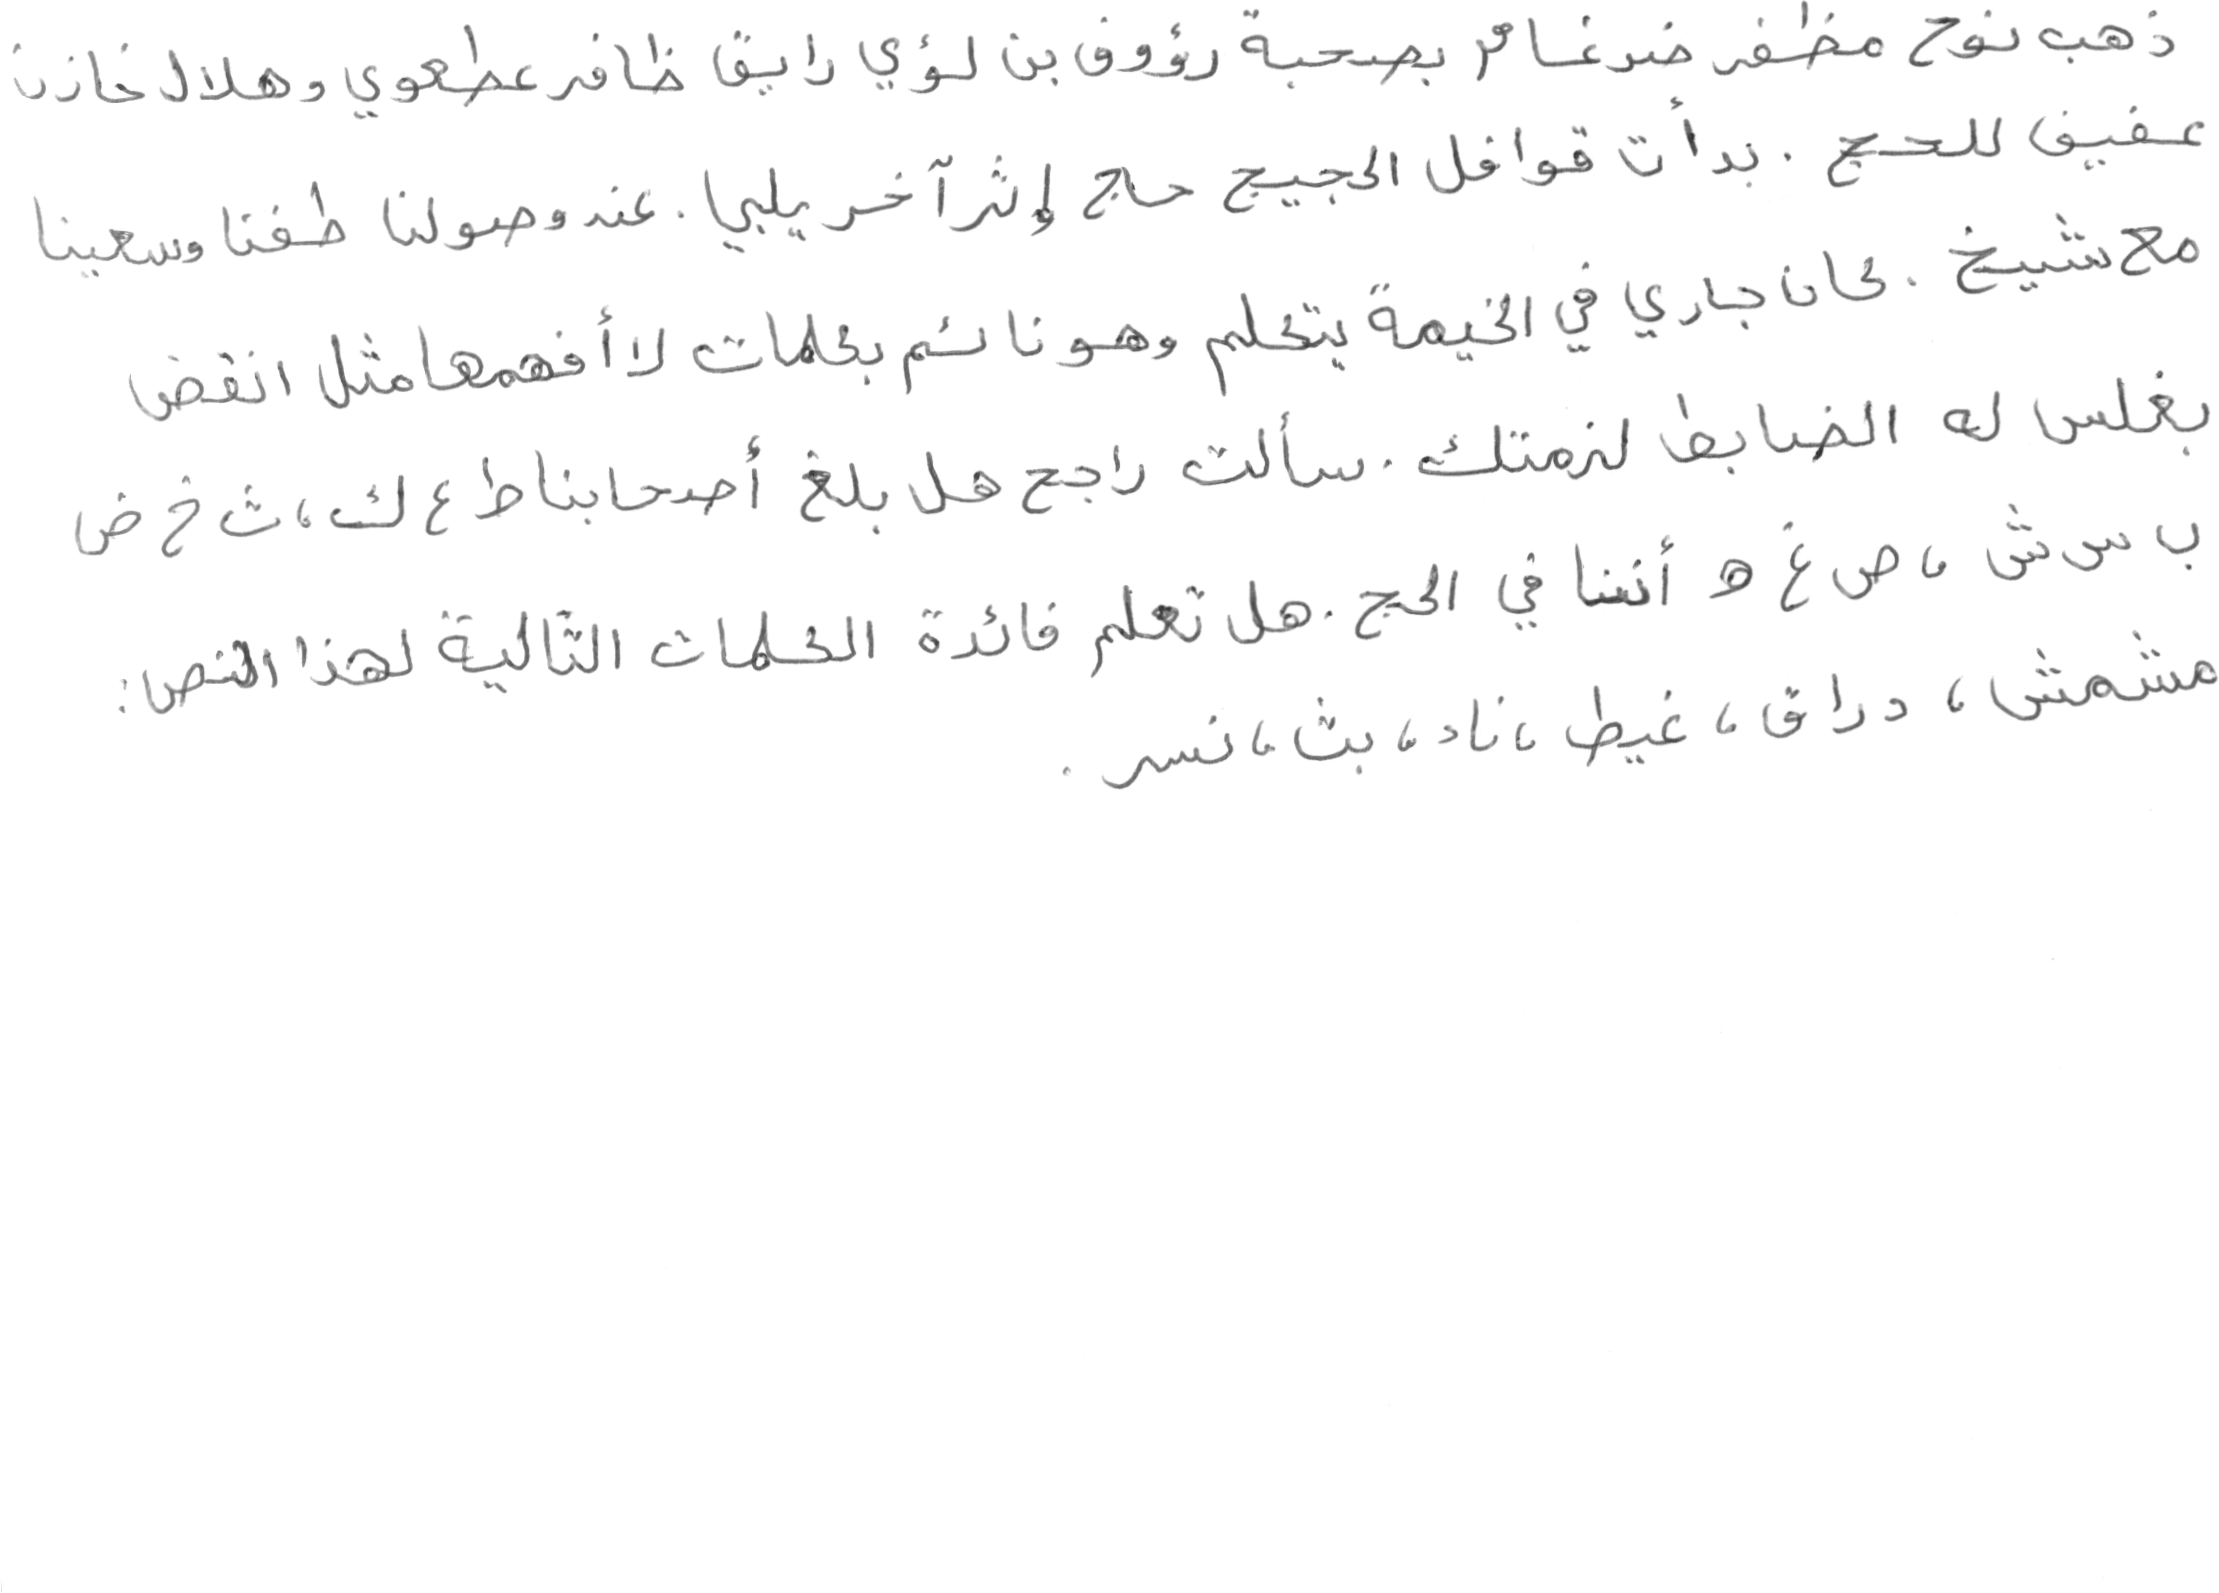 ذهب نوح مظفر ضرغام بصحبة رؤوف بن لؤي رايق ظافر عطعوي وهلال خازن
عفيف للحج . بدأت قوافل الحجيج حاج إثر آخر يلبي . عند وصولنا طفنا وسعينا
مع شيخ . كان جاري في الخيمة يتكلم وهو نائم بكلمات لا أفهمها مثل انقض
بغلس له الضابط لزمتك . سألت راجح هل بلغ أصحابنا ط ع ك ، ث خ ض
ب س ش ، ص غ ه أننا في الحج . هل تعلم فائدة الكلمات التالية لهذا النص :
مشمش ، دراق ، غيط ، ناد ، بث ، نسر .